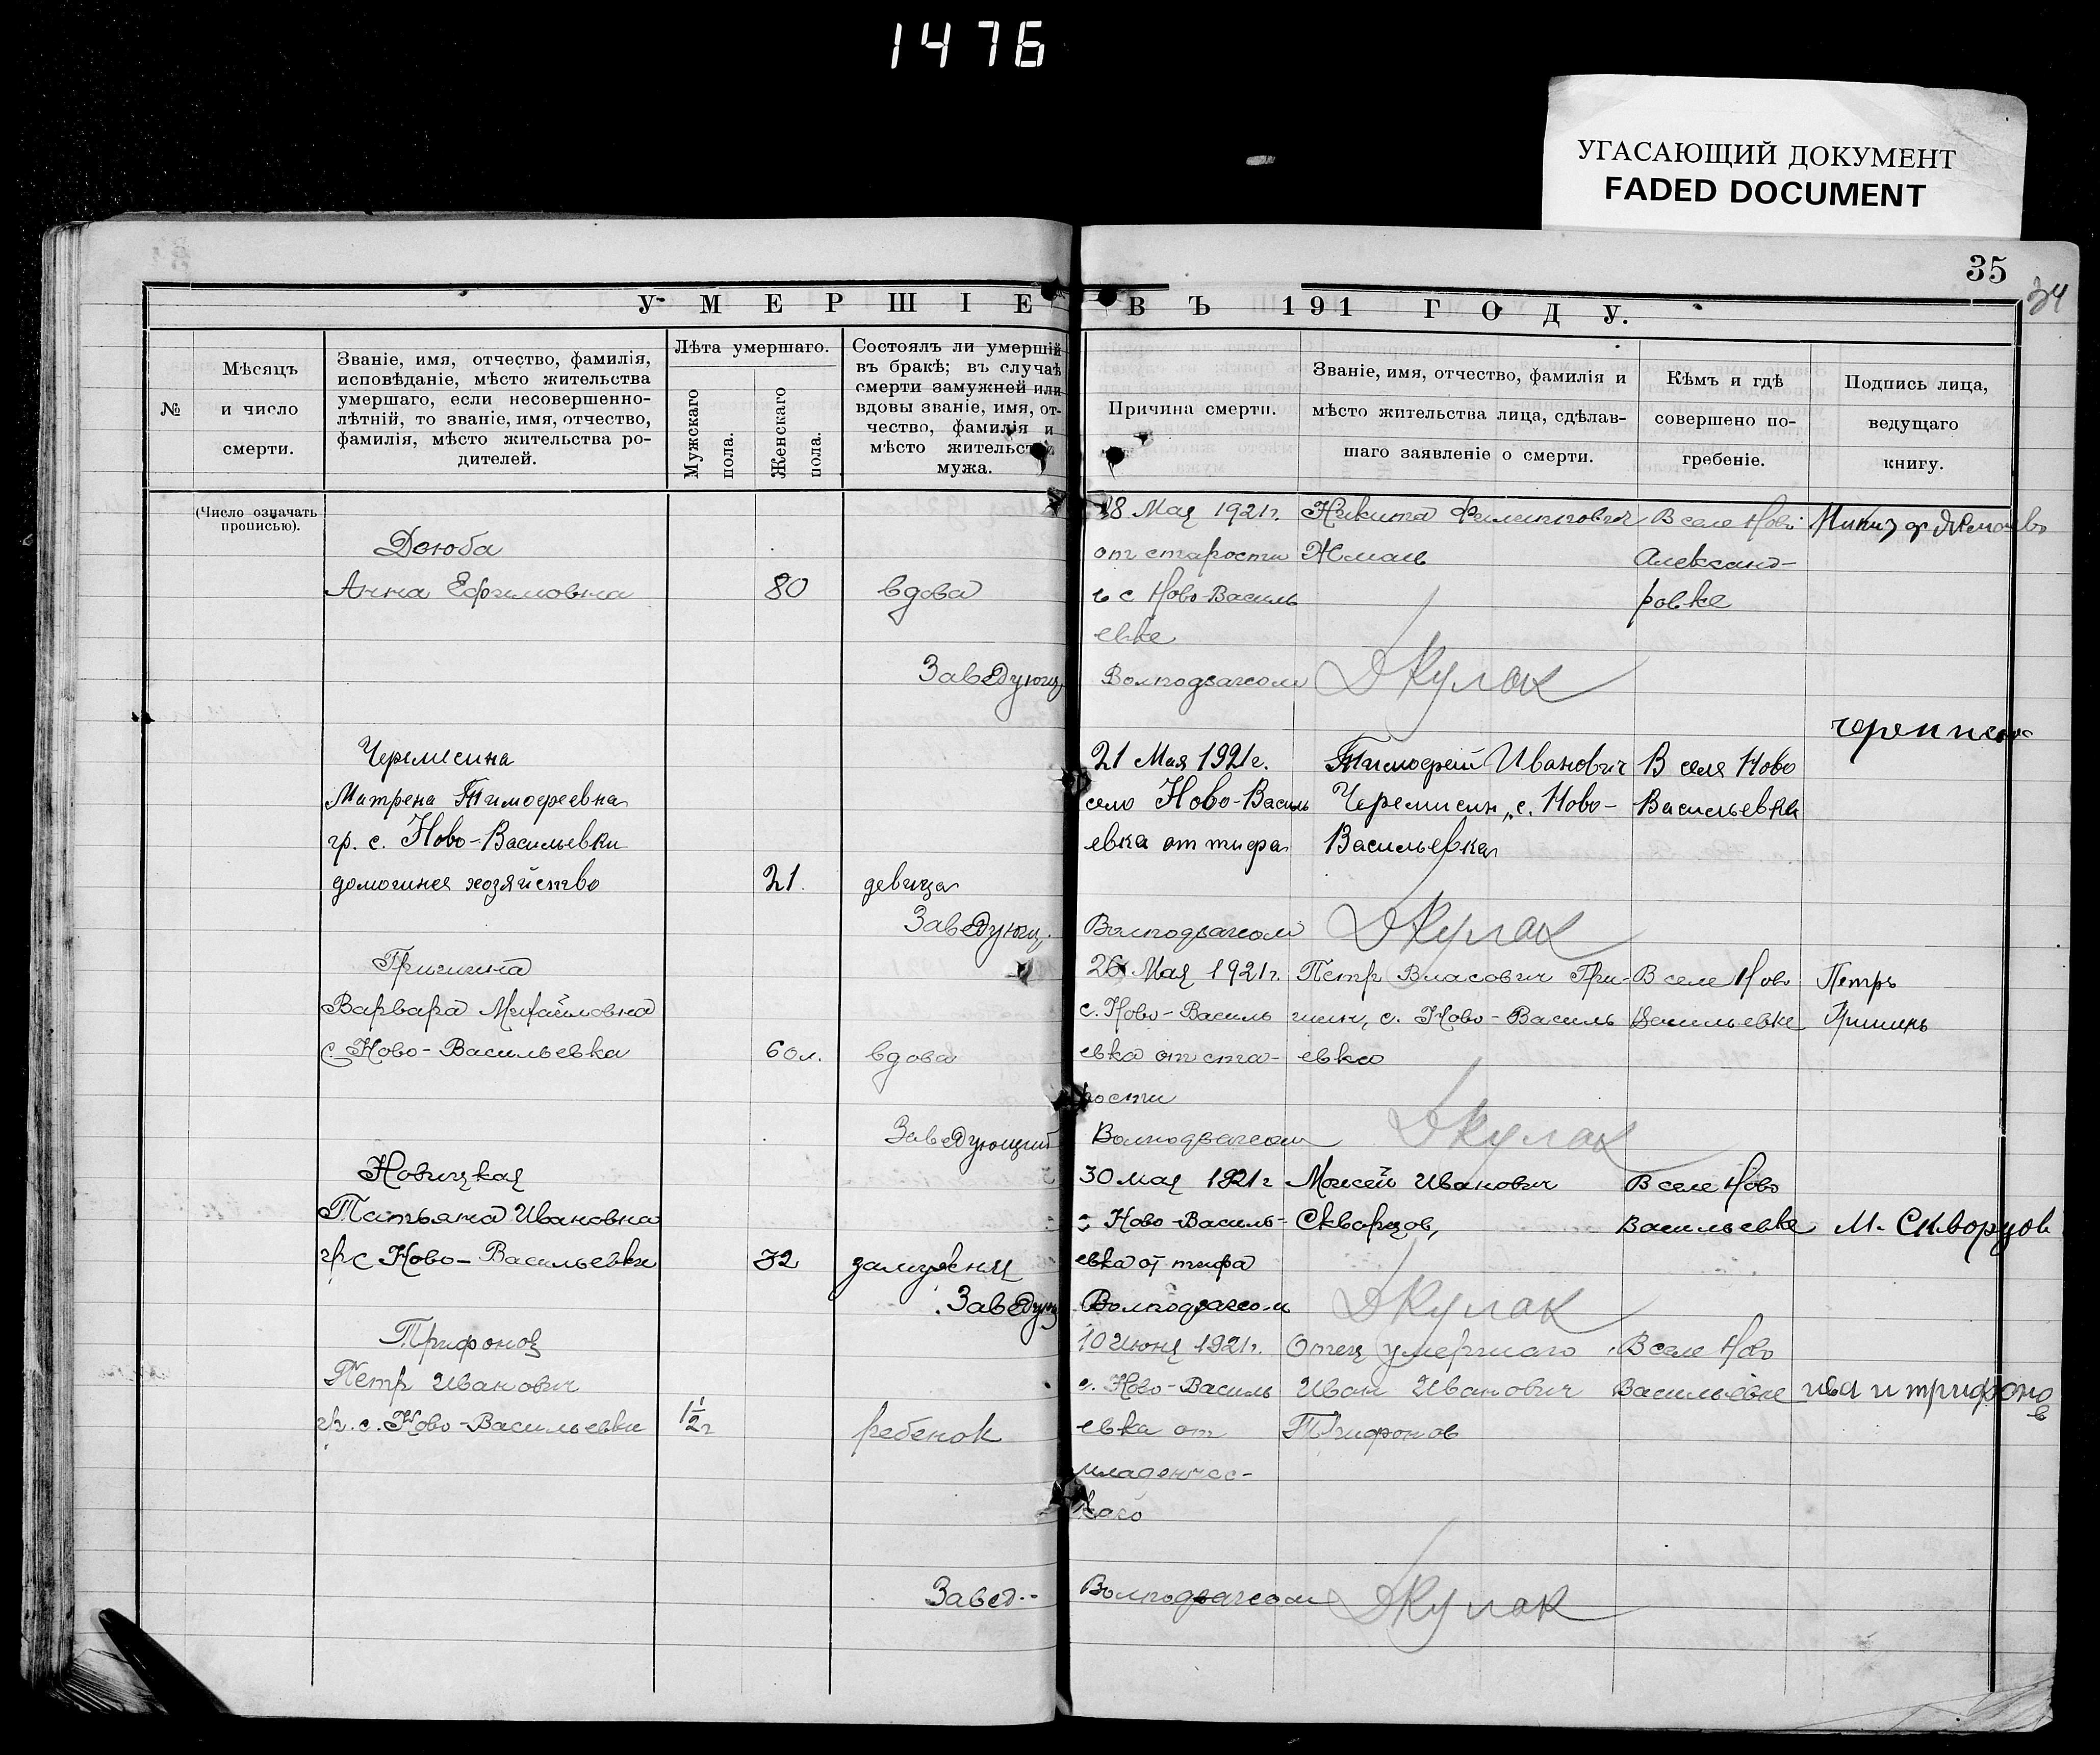 1476
УГАСАЮЩИЙ ДОКУМЕНТ
FADED DOCUMENT
35
34
УМЕРШІЕ ВЪ 191 ГОДУ.
№
Мѣсяцъ
и число
смерти.
Званіе, имя, отчество, фамилія,
исповѣданіе, мѣсто жительства
умершаго, если несовершенно-
лѣтній, то званіе, имя, отчество,
фамилія, мѣсто жительства ро-
дителей.
Лѣта умершаго.
Мужскаго
пола.
Женскаго
пола.
Состоялъ ли умершій
въ бракѣ; въ случаѣ
смерти замужней или
вдовы званіе, имя, от-
чество, фамилія и
мѣсто жительства
мужа.
Причина смерти.
Званіе, имя, отчество, фамилія и
мѣсто жительства лица, сдѣлав-
шаго заявленіе о смерти.
Кѣмъ и гдѣ
совершено по-
гребеніе.
Подпись лица,
ведущаго
книгу.
(Число означать
прописью).
Дзюба
Анна Ефимовна
80
вдова
18 Мая 1921г.
от старости
в с Ново-Василь
евке
Никита Филиппович
Жмаль
В селе Ново
Александ-
ровке
Заведующ
Волподзагсом
Д Кулак
Черемисина
Матрена Тимофеевна
гр. с. Ново-Васильевки
домашнее хозяйство
21.
девица
21 Мая 1921г.
село Ново-Василь
евка от тифа
Тимофей Иванович
Черемисин, с. Ново-
Васильевка
В селе Ново
Васильевка
Заведующ.
Волподзагсом
Д Кулак
Гришина
Варвара Михайловна
с. Ново-Васильевка
60л.
вдова
26 Мая 1921г.
с. Ново-Василь
евка от ста-
рости
Петр Власович Гри-
шин, с. Ново-Василь
евка
В селе Ново
Васильевке
Петръ
Гришинъ
Заведующий
Волподзагсом
Д Кулак
Новицкая
Татьяна Ивановна
гр с Ново-Васильевки
32
замужняя
30 мая 1921г
с Ново-Василь-
евка от тифа
Моисей Иванович
Скворцов,
В селе Ново
Васильевке
М. Скворцов
Заведующ
Волподзагсом
Д Кулак
Трифонов
Петр Иванович
гр. с. Ново-Васильевки
1 1/2 г
ребенок
10 июня 1921г.
с. Ново-Василь
евка от
младенчес-
каго
Отец умершаго
Иван Иванович
Трифонов
В селе Ново
Васильевке
трифоно
в
Завед.
Волподзагсом
Д Кулак